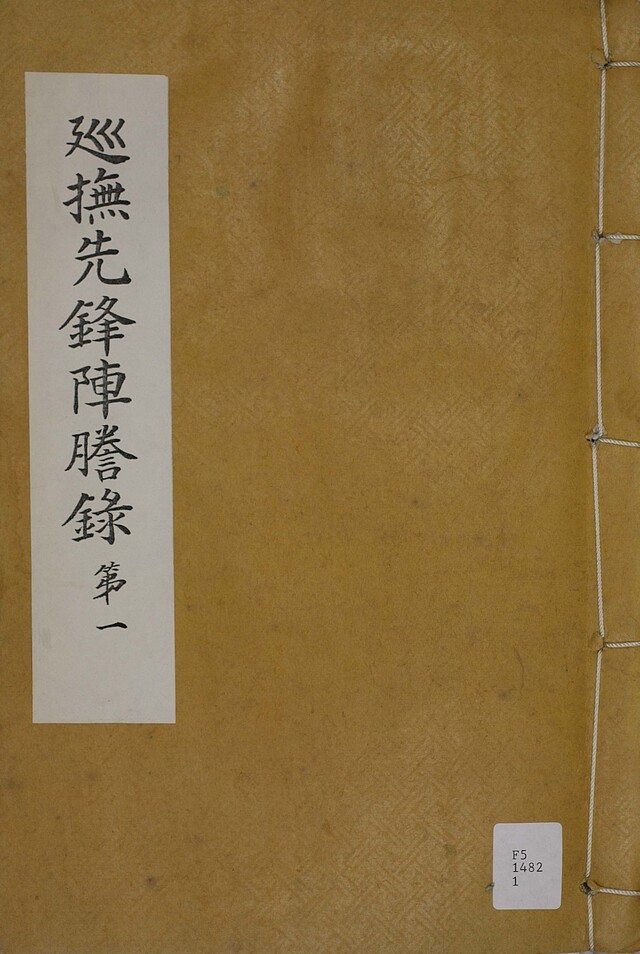 廵撫先鋒陣謄錄 第一
F5
1482
1